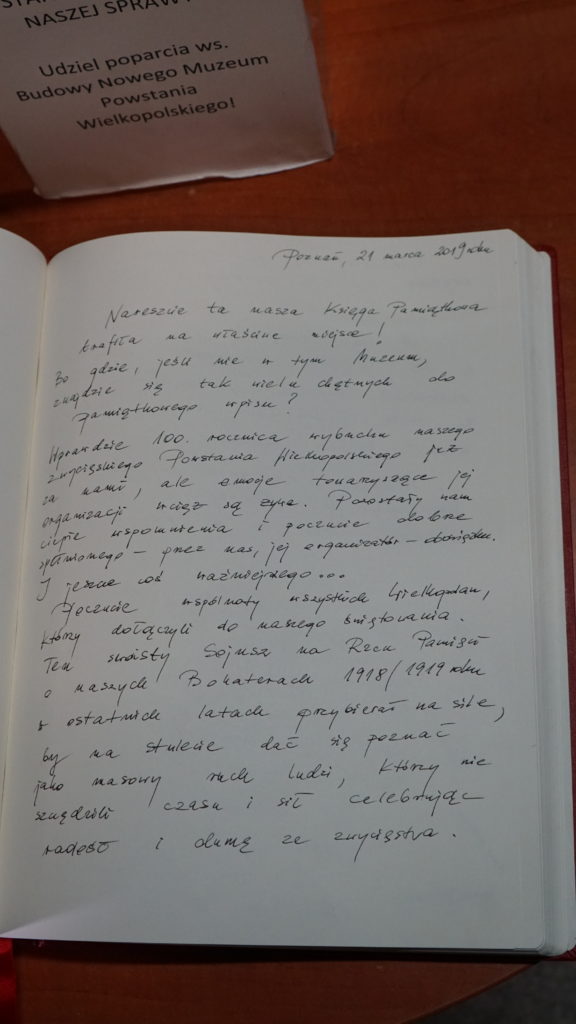 NASZEJ SPRAW
Udziel poparcia ws.
Budowy Nowego Muzeum
Powstania
Wielkopolskiego!
Poznań, 21 marca 2019 roku
Nareszcie ta nasza Księga Pamiątkowa
trafiła na właściwe miejsce!
Bo gdzie, jeśli nie w tym Muzeum,
znajdzie się tak wielu chętnych do
pamiątkowego wpisu?
Wprawdzie 100. rocznica wybuchu naszego
zwycięskiego Powstania Wielkopolskiego już
za nami, ale emocje towarzyszące jej
organizacji wciąż są żywe. Pozostały nam
ciepłe wspomnienia i poczucie dobrze
spełnionego – przez nas, jej organizatorów – obowiązku.
I jeszcze coś ważniejszego...
Poczucie wspólnoty wszystkich Wielkopolan,
którzy dołączyli do naszego świętowania.
Ten swoisty Sojusz na Rzecz Pamięci
o naszych Bohaterach 1918/1919 roku
w ostatnich latach przybierał na sile,
by na stulecie dać się poznać
jako masowy ruch ludzi, którzy nie
szczędzili czasu i sił celebrując
radość i dumę ze zwycięstwa.